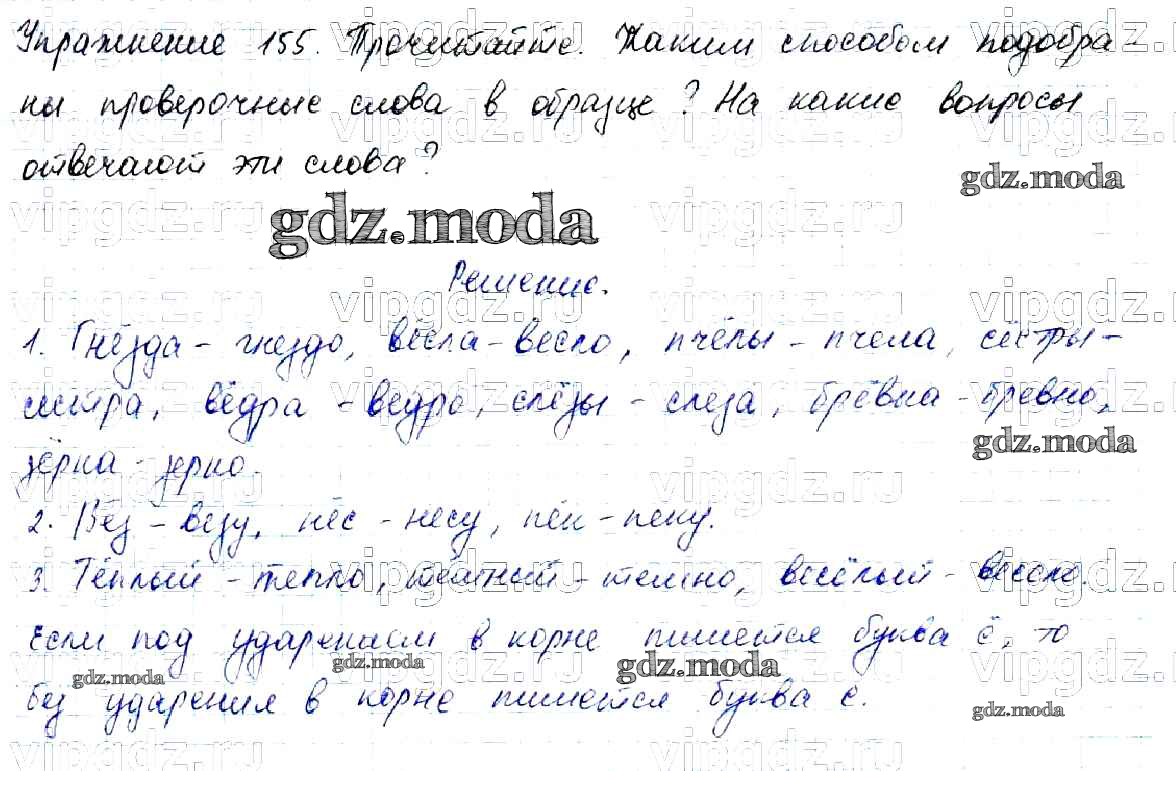 Упражнение 155. Прочитайте. Каким способом подобра-
ны проверочные слова в образце? На какие вопросы
отвечают эти слова?
gdz.moda
gdz.moda
Решение.
1. Гнёзда - гнездо, вёсла - весло, пчёлы - пчела, сёстры -
сестра, вёдра - ведро, слёзы - слеза, брёвна - бревно,
gdz.moda
зёрна - зерно.
2. Вёз - везу, нёс - несу, пёк - пеку.
3. Тёплый - тепло, тёмный - темно, весёлый - весело.
Если под ударением в корне пишется буква ё, то
gdz.moda gdz.moda gdz.moda
без ударения в корне пишется буква е.
gdz.moda
vipgdz.ru